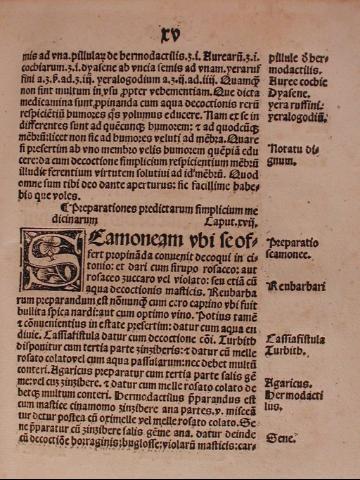 xv
mis ad vna. pillularū de hermodactilis. ʒ.i. Aurearū. ʒ.i.
cochiarum. ʒ.i. dyasene ab vncia semis ad vnam. yeraruf
fini a. ʒ.ꝟ. ad. ʒ.iij. yeralogodium a. ʒ.ij. ad. iiij. Quamq̄
non sint multum in vsu ꝓpter vehementiam. Que dicta
medicamina sunt ꝓpinanda cum aqua decoctionis rerū
respiciētiū humores q̄s volumus educere. Nam et se in
differentes sunt ad quēcunq̄ humorem: ⁊ ad quodcūq̄
mēbrū: licet non sic ad humores veluti ad mēbra. Quare
si presertim ab vno membro velis humorem quēpiā edu
cere: da cum decoctione simplicium respicientium mēbrū
illud ⁊ ferentium virtutem solutiui ad id mēbrū. Quod
omne sum tibi deo dante aperturus: sic facillime habe-
bis que voles.
¶ Preparationes predictarum simplicium me
dicinarum Caput. xvij.
SCamoneam vbi se of-
fert propināda conuenit decoqui in ci
tonio: et dari cum sirupo rosaceo: aut
rosaceo zuccaro vel violato: seu etiā cū
aqua decoctionis masticis. Reubarba
rum preparandum est nōnunq̄ cum sero caprino vbi fuit
bullita spica nardi: aut cum optimo vino. Potius tamē
⁊ cōuenientius in estate presertim: datur cum aqua en
diuie. Cassiafistula datur cum decoctione cōi. Turbith
disponitur cum tertia parte zinziberis: ⁊ datur cū melle
rosato colato vel cum aqua passularum: nec debet multū
conteri. Agaricus preparatur cum tertia parte salis gē
me: vel cuȝ zinzibere. ⁊ datur cum melle rosato colato de
betq̄ multum conteri. Hermodactilus p̄parandus est
cum mastice cinamomo zinzibere ana partes. v. misceā
tur detur postea cū oximelle vel melle. rosato colato. Se
ne p̄paratur cū zinzibere salis gēme ana. datur deinde
cū decoctiōe boraginis: buglosse: violarū masticis: car-
pillule ð her-
modactilis.
Auree cochie
Dyasene.
yera ruffini.
yeralogodiū.
Notatu di
gnum.
Preparatio
scamonee.
Reubarbari
Cassiafistula
Turbith.
Agaricus.
Hermodacti
lus.
Sene.